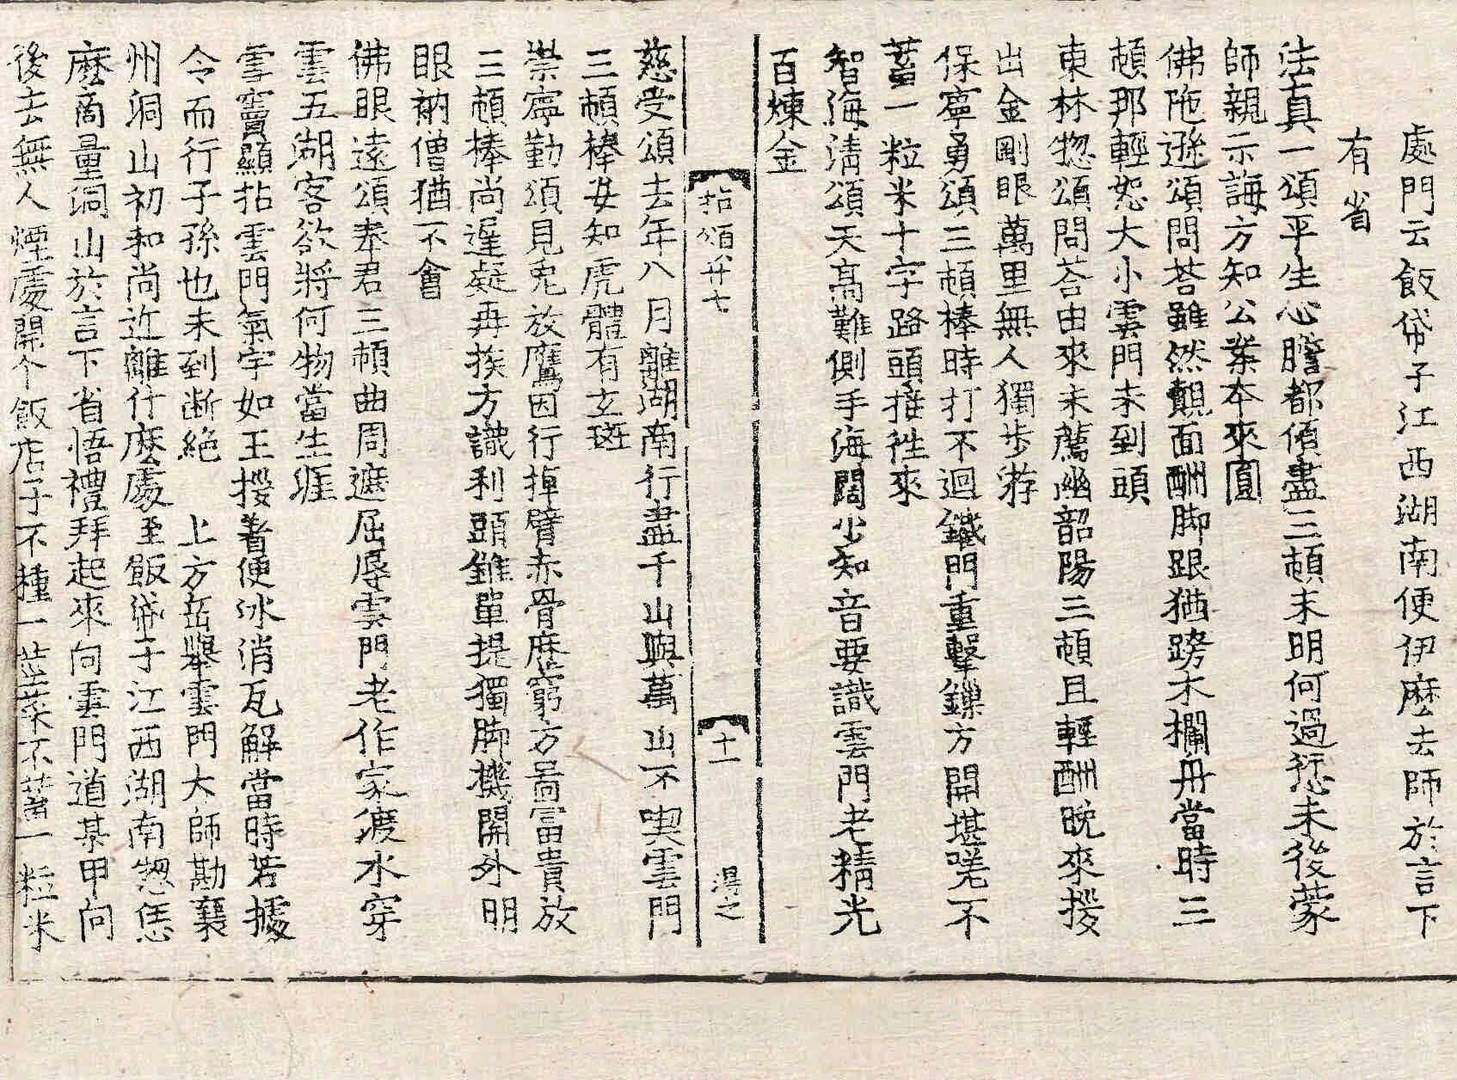 處門云飯帒子江西湖南便伊麽去師於言下
有省
法真一頌平生心膽都傾盡三頓未明何過愆未後蒙
師親示誨方知公案本來圓
佛陁遜頌問荅雖然覿面酬脚跟猶跨木欄舟當時三
頓那輕恕大小雲門未到頭
東林惣頌問荅由來未薦幽韶陽三頓且輕酬晚來撥
出金剛眼萬里無人獨步游
保寧勇頌三頓棒時打不迴鐵門重擊鏁方開堪嗟不
蓄一粒米十字路頭接徃來
智海清頌天高難側手海闊少知音要識雲門老精光
百煉金
拈頌卄七
十一
淂之
慈受頌去年八月離湖南行盡千山與萬山不喫雲門
三頓棒安知虎體有玄斑
崇寧勤頌見兎放鷹因行掉臂赤骨歷窮方啚富貴放
三頓棒尚遲疑再挨方識利頭錐單提獨脚機開外明
眼衲僧猶不會
佛眼遠頌奉君三頓曲周遮屈辱雲門老作家渡水穿
雲五湖客欲將何物當生涯
雪竇顯拈雲門氣宇如王授著便氷消瓦解當時若據
令而行子孫也未到断絶
上方岳擧雲門大師勘襄
州洞山初和尚近離什麽處至飯袋子江西湖南惣恁
麽商量洞山於言下省悟禮拜起來向雲門道某甲向
後去無人煙處開个飯店子不種一莖菜不蓄一粒米